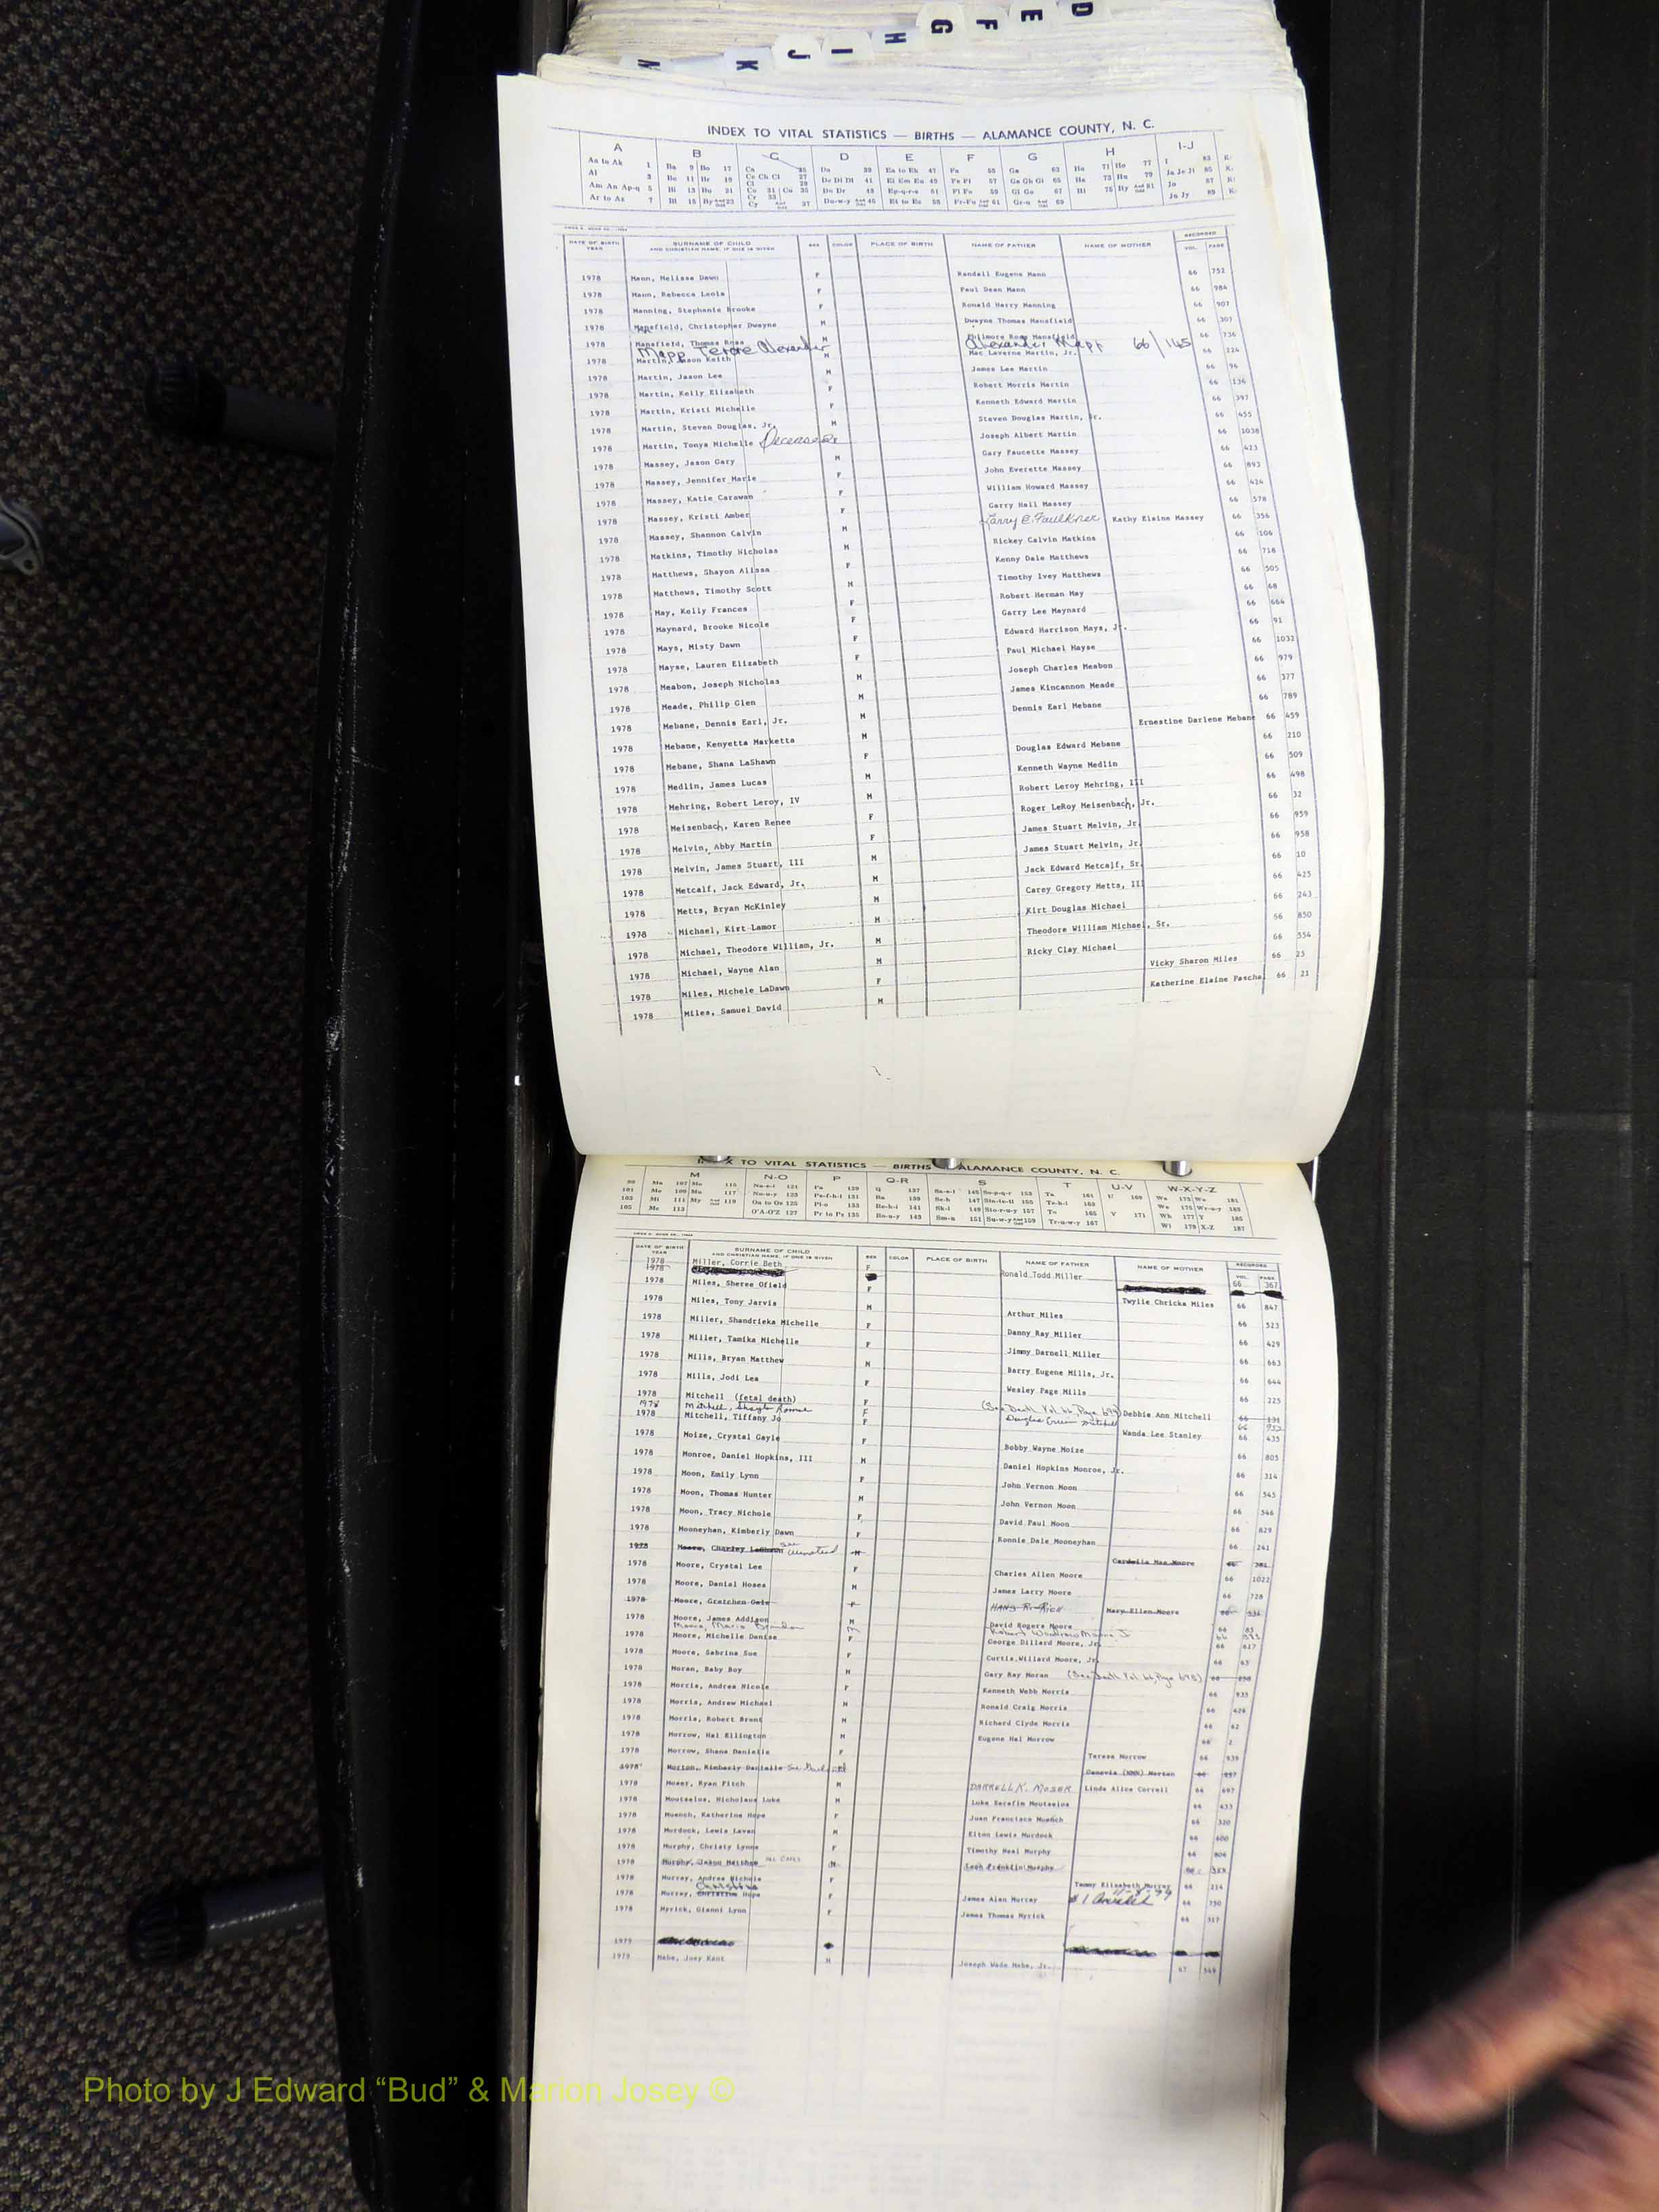 D
E
F
G
H
I
J
K
INDEX TO VITAL STATISTICS — BIRTHS — ALAMANCE COUNTY, N. C.
A B C D E F G H I-J
DATE OF BIRTH YEAR SURNAME OF CHILD AND CHRISTIAN NAME, IF ONE IS GIVEN SEX COLOR PLACE OF BIRTH NAME OF FATHER NAME OF MOTHER RECORDED VOL. PAGE
1978 Mann, Melissa Dawn F Randall Eugene Mann 66 752
1978 Mann, Rebecca Leola F Paul Dean Mann 66 984
1978 Manning, Stephanie Brooke F Ronald Harry Manning 66 907
1978 Mansfield, Christopher Dwayne M Dwayne Thomas Mansfield 66 307
1978 Mansfield, Thomas Ross M Philmore Ross Mansfield 66 736
Mapp Alexander Alexander Mapp 66/145
1978 Martin, Jason Keith M Mac Laverne Martin, Jr. 66 224
1978 Martin, Jason Lee M James Lee Martin 66 96
1978 Martin, Kelly Elizabeth F Robert Morris Martin 66 136
1978 Martin, Kristi Michelle F Kenneth Edward Martin 66 397
1978 Martin, Steven Douglas, Jr. M Steven Douglas Martin, Sr. 66 455
1978 Martin, Tonya Michelle Deceased Joseph Albert Martin 66 1038
1978 Massey, Jason Gary M Gary Faucette Massey 66 423
1978 Massey, Jennifer Marie F John Everette Massey 66 893
1978 Massey, Katie Carawan F William Howard Massey 66 424
1978 Massey, Kristi Amber F Garry Hall Massey 66 578
1978 Massey, Shannon Calvin M Larry E. Faulkner Kathy Elaine Massey 66 356
1978 Matkins, Timothy Nicholas M Rickey Calvin Matkins 66 106
1978 Matthews, Shayon Alissa F Kenny Dale Matthews 66 718
1978 Matthews, Timothy Scott M Timothy Ivey Matthews 66 505
1978 May, Kelly Frances F Robert Herman May 66 68
1978 Maynard, Brooke Nicole F Garry Lee Maynard 66 664
1978 Mays, Misty Dawn F Edward Harrison Mays, Jr. 66 91
1978 Mayse, Lauren Elizabeth F Paul Michael Mayse 66 1032
1978 Meabon, Joseph Nicholas M Joseph Charles Meabon 66 979
1978 Meade, Philip Glen M James Kincannon Meade 66 377
1978 Mebane, Dennis Earl, Jr. M Dennis Earl Mebane 66 789
1978 Mebane, Kenyetta Marketta M Ernestine Darlene Mebane 66 459
1978 Mebane, Shana LaShawn F Douglas Edward Mebane 66 210
1978 Medlin, James Lucas M Kenneth Wayne Medlin 66 509
1978 Mehring, Robert Leroy, IV M Robert Leroy Mehring, III 66 498
1978 Meisenbach, Karen Renee F Roger LeRoy Meisenbach, Jr. 66 32
1978 Melvin, Abby Martin F James Stuart Melvin, Jr. 66 959
1978 Melvin, James Stuart, III M James Stuart Melvin, Jr. 66 958
1978 Metcalf, Jack Edward, Jr. M Jack Edward Metcalf, Sr. 66 10
1978 Metts, Bryan McKinley M Carey Gregory Metts, III 66 425
1978 Michael, Kirt Lamor M Kirt Douglas Michael 66 243
1978 Michael, Theodore William, Jr. M Theodore William Michael, Sr. 66 850
1978 Michael, Wayne Alan M Ricky Clay Michael 66 554
1978 Miles, Michele LaDawn F Vicky Sharon Miles 66 23
1978 Miles, Samuel David M Katherine Elaine Pascha 66 21
TO VITAL STATISTICS — BIRTHS — ALAMANCE COUNTY, N. C.
M N-O P Q-R S T U-V W-X-Y-Z
DATE OF BIRTH YEAR SURNAME OF CHILD AND CHRISTIAN NAME, IF ONE IS GIVEN SEX COLOR PLACE OF BIRTH NAME OF FATHER NAME OF MOTHER RECORDED VOL. PAGE
1978 Miller, Corrie Beth F Ronald Todd Miller 66 367
1978
1978 Miles, Sheree Ofield F Twylie Chricka Miles 66 847
1978 Miles, Tony Jarvis M Arthur Miles 66 523
1978 Miller, Shandrieka Michelle F Danny Ray Miller 66 429
1978 Miller, Tamika Michelle F Jimmy Darnell Miller 66 663
1978 Mills, Bryan Matthew M Barry Eugene Mills, Jr. 66 644
1978 Mills, Jodi Lea F Wesley Page Mills 66 225
1978 Mitchell (fetal death) F (See Death Vol. 66, Page 699) Debbie Ann Mitchell 66 131
1978 Mitchell, F Douglas Mitchell 66
1978 Mitchell, Tiffany Jo F Wanda Lee Stanley 66 435
1978 Moize, Crystal Gayle F Bobby Wayne Moize 66 805
1978 Monroe, Daniel Hopkins, III M Daniel Hopkins Monroe, Jr. 66 314
1978 Moon, Emily Lynn F John Vernon Moon 66 545
1978 Moon, Thomas Hunter M John Vernon Moon 66 546
1978 Moon, Tracy Nichole F David Paul Moon 66 829
1978 Mooneyhan, Kimberly Dawn F Ronnie Dale Mooneyhan 66 241
1978 Moore, Charley see M Cardelia Mae Moore 66 381
1978 Moore, Crystal Lee F Charles Allen Moore 66 1022
1978 Moore, Danial Hosea M James Larry Moore 66 728
1978 Moore, Gretchen F HANS R. RICH Mary Ellen Moore 66 534
1978 Moore, James Addison M David Rogers Moore 66 85
Moore, Mario Brandon M Robert Woodrow Moore Jr 66
1978 Moore, Michelle Denise F George Dillard Moore, Jr. 66 617
1978 Moore, Sabrina Sue F Curtis Willard Moore, Jr. 66 45
1978 Moran, Baby Boy M Gary Ray Moran (See Death Vol. 66, Page 698) 66
1978 Morris, Andrea Nicole F Kenneth Webb Morris 66 935
1978 Morris, Andrew Michael M Ronald Craig Morris 66 426
1978 Morris, Robert Brent M Richard Clyde Morris 66 62
1978 Morrow, Hal Ellington M Eugene Hal Morrow 66 2
1978 Morrow, Shana Danielle F Teresa Morrow 66 939
1978 Morton, Kimberly Danielle See Genevia (NMN) Morton 66
1978 Moser, Ryan Fitch M DARRELL K. MOSER Linda Alice Correll 66 697
1978 Moutselos, Nicholaus Luke M Luke Serafim Moutselos 66 433
1978 Muench, Katherine Hope F Juan Francisco Muench 66 320
1978 Murdock, Lewis Lavan M Elton Lewis Murdock 66 600
1978 Murphy, Christy Lynne F Timothy Neal Murphy 66 806
1978 Murphy, Jason Matthew M Leon Franklin Murphy 66
1978 Murray, Andrea Nichole F Tammy Elizabeth Murray 66 214
1978 Murray, Hope F James Alan Murray 66 750
1978 Myrick, Gianni Lynn F James Thomas Myrick 66 317
1979
1979 Mabe, Joey Kent M Joseph Wade Mabe, Jr. 67 549
Photo by J Edward “Bud” & Marion Josey ©